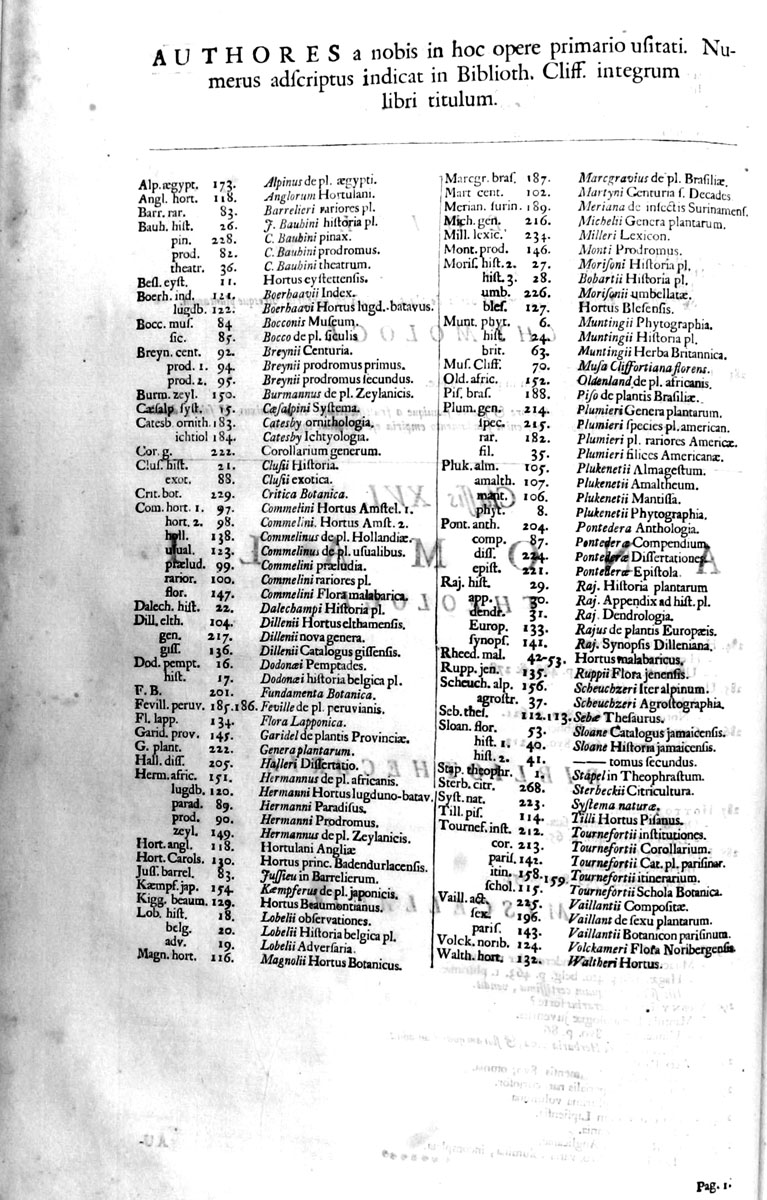 AUTHORES a nobis in hoc opere primario uſitati. Nu-
merus adſcriptus indicat in Biblioth. Cliff. integrum
libri titulum.
Alp. ægypt. 173. Alpinus de pl. ægypti.
Angl. hort. 118. Anglorum Hortulani.
Barr. rar. 83. Barrelieri rariores pl.
Bauh. hiſt. 26. J. Bauhini hiſtoria pl.
pin. 228. C. Bauhini pinax.
prod. 82. C. Bauhini prodromus.
theatr. 36. C. Bauhini theatrum.
Beſl. eyſt. 11. Hortus eyſtettenſis.
Boerh. ind. 121. Boerhaavii Index.
lugdb. 122. Boerhaavi Hortus lugd.-batavus.
Bocc. muſ. 84 Bocconis Muſeum.
ſic. 85. Bocco de pl. ſiculis
Breyn. cent. 92. Breynii Centuria.
prod 1. 94. Breynii prodromus primus.
prod. 2. 95. Breynii prodromus ſecundus.
Burm. zeyl. 150. Burmannus de pl. Zeylanicis.
Cæſalp ſyſt. 15. Cæſalpini Syſtema.
Catesb. ornith. 183. Catesby ornithologia.
ichtiol 184. Catesby Ichtyologia.
Cor. g. 222. Corollarium generum.
Cluſ. hiſt. 21. Cluſii Hiſtoria.
exot. 88. Cluſii exotica.
Crit. bot. 229. Critica Botanica.
Com. hort. 1. 97. Commelini Hortus Amſtel. 1.
hort. 2. 98. Commelini. Hortus Amſt. 2.
holl. 138. Commelinus de pl. Hollandiæ.
uſual. 123. Commelinus de pl. uſualibus.
prælud. 99. Commelini præludia.
rarior. 100. Commelini rariores pl.
flor. 147. Commelini Flora malabarica.
Dalech. hiſt. 22. Dalechampi Hiſtoria pl.
Dill. elth. 104. Dillenii Hortus elthamenſis.
gen. 217. Dillenii nova genera.
giſſ. 136. Dillenii Catalogus giſſenſis.
Dod. pempt. 16. Dodonæi Pemptades.
hiſt. 17. Dodonæi hiſtoria belgica pl.
F. B. 201. Fundamenta Botanica.
Fevill. peruv. 185. 186. Feville de pl. peruvianis.
Fl. lapp. 134. Flora Lapponica.
Garid. prov. 145. Garidel de plantis Provinciæ.
G. plant. 222. Genera plantarum.
Hall. diſſ. 205. Halleri Diſſertatio.
Herm. afric. 151. Hermannus de pl. africanis.
lugdb. 120. Hermanni Hortus lugduno-batav.
parad. 89. Hermanni Paradiſus.
prod. 90. Hermanni Prodromus.
zeyl. 149. Hermannus de pl. Zeylanicis.
Hort. angl. 118. Hortulani Angliæ
Hort. Carols. 130. Hortus princ. Badendurlacenſis.
Juſſ. barrel. 83. Juſſieu in Barrelierum.
Kæmpf. jap. 154. Kæmpferus de pl. japonicis.
Kigg. beaum. 129. Hortus Beaumontianus.
Lob. hiſt. 18. Lobelii obſervationes.
belg. 20. Lobelii Hiſtoria belgica pl.
adv. 19. Lobelii Adverſaria.
Magn. hort. 116. Magnolii Hortus Botanicus.
Marcgr. braſ. 187. Marcgravius de pl. Braſiliæ.
Mart cent. 102. Martyni Centuria ſ. Decades
Merian. ſurin. 189. Meriana de inſectis Surinamenſ.
Mich. gen. 216. Michelii Genera plantarum.
Mill. lexic. 234. Milleri Lexicon.
Mont. prod. 146. Monti Prodromus.
Moriſ. hiſt. 2. 27. Moriſoni Hiſtoria pl.
hiſt. 3. 28. Bobartii Hiſtoria pl.
umb. 226. Moriſonii umbellatæ.
bleſ. 127. Hortus Bleſenſis.
Munt. phyt. 6. Muntingii Phytographia.
hiſt. 24. Muntingii Hiſtoria pl.
brit. 63. Muntingii Herba Britannica.
Muſ. Cliff. 70. Muſa Cliffortiana florens.
Old. afric. 152. Oldenland de pl. africanis.
Piſ. braſ. 188. Piſo de plantis Braſiliæ.
Plum. gen. 214. Plumieri Genera plantarum.
ſpec. 215. Plumieri ſpecies pl. american.
rar. 182. Plumieri pl. rariores Americæ.
fil. 35. Plumieri filices Americanæ.
Pluk. alm. 105. Plukenetii Almageſtum.
amalth. 107. Plukenetii Amaltheum.
mant. 106. Plukenetii Mantiſſa.
phyt. 8. Plukenetii Phytographia.
Pont. anth. 204. Pontedera Anthologia.
comp. 87. Pontederæ Compendium.
diſſ. 224. Pontederæ Diſſertationes.
epiſt. 221. Pontederæ Epiſtola.
Raj. hiſt. 29. Raj. Hiſtoria plantarum
app. 30. Raj. Appendix ad hiſt. pl.
dendr. 31. Raj. Dendrologia.
Europ. 133. Rajus de plantis Europæis.
ſynopſ. 141. Raj. Synopſis Dilleniana.
Rheed. mal. 42-53. Hortus malabaricus.
Rupp. jen. 135. Ruppii Flora jenenſis.
Scheuch. alp. 156. Scheuchzeri Iter alpinum.
agroſtr. 37. Scheuchzeri Agroſtographia.
Seb. theſ. 112. 113. Sebæ Theſaurus.
Sloan. flor. 53. Sloane Catalogus jamaicenſis.
hiſt. 1. 40. Sloane Hiſtoria jamaicenſis.
hiſt. 2. 41. —— tomus ſecundus.
Stap. theophr. 1. Stapel in Theophraſtum.
Sterb. citr. 268. Sterbeckii Citricultura.
Syſt. nat. 223. Syſtema naturæ.
Till. piſ. 114. Tilli Hortus Piſanus.
Tournef. inſt. 212. Tournefortii inſtitutiones.
cor. 213. Tournefortii Corollarium.
pariſ. 142. Tournefortii Cat. pl. pariſinar.
itin. 158. 159. Tournefortii itinerarium.
ſchol. 115. Tournefortii Schola Botanica.
Vaill. act. 225. Vaillantii Compoſitæ.
ſex. 196. Vaillant de ſexu plantarum.
pariſ. 143. Vaillantii Botanicon pariſinum.
Volck. norib. 124. Volckameri Flora Noribergenſis
Walth. hort. 132. Waltheri Hortus.
Pag. 1.